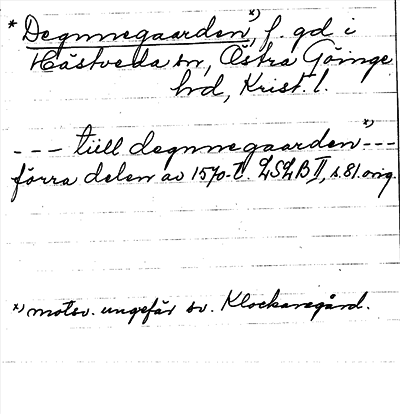 * Degnnegaarden *), f. gd i
Hästveda sn, Östra Göinge
hd, Krist. l.
--- tiill degnnegaarden *) ---
förra delen av 1570-t. LSLB II, s. 81. orig.
*) motsv. ungefär sv. Klockaregård.